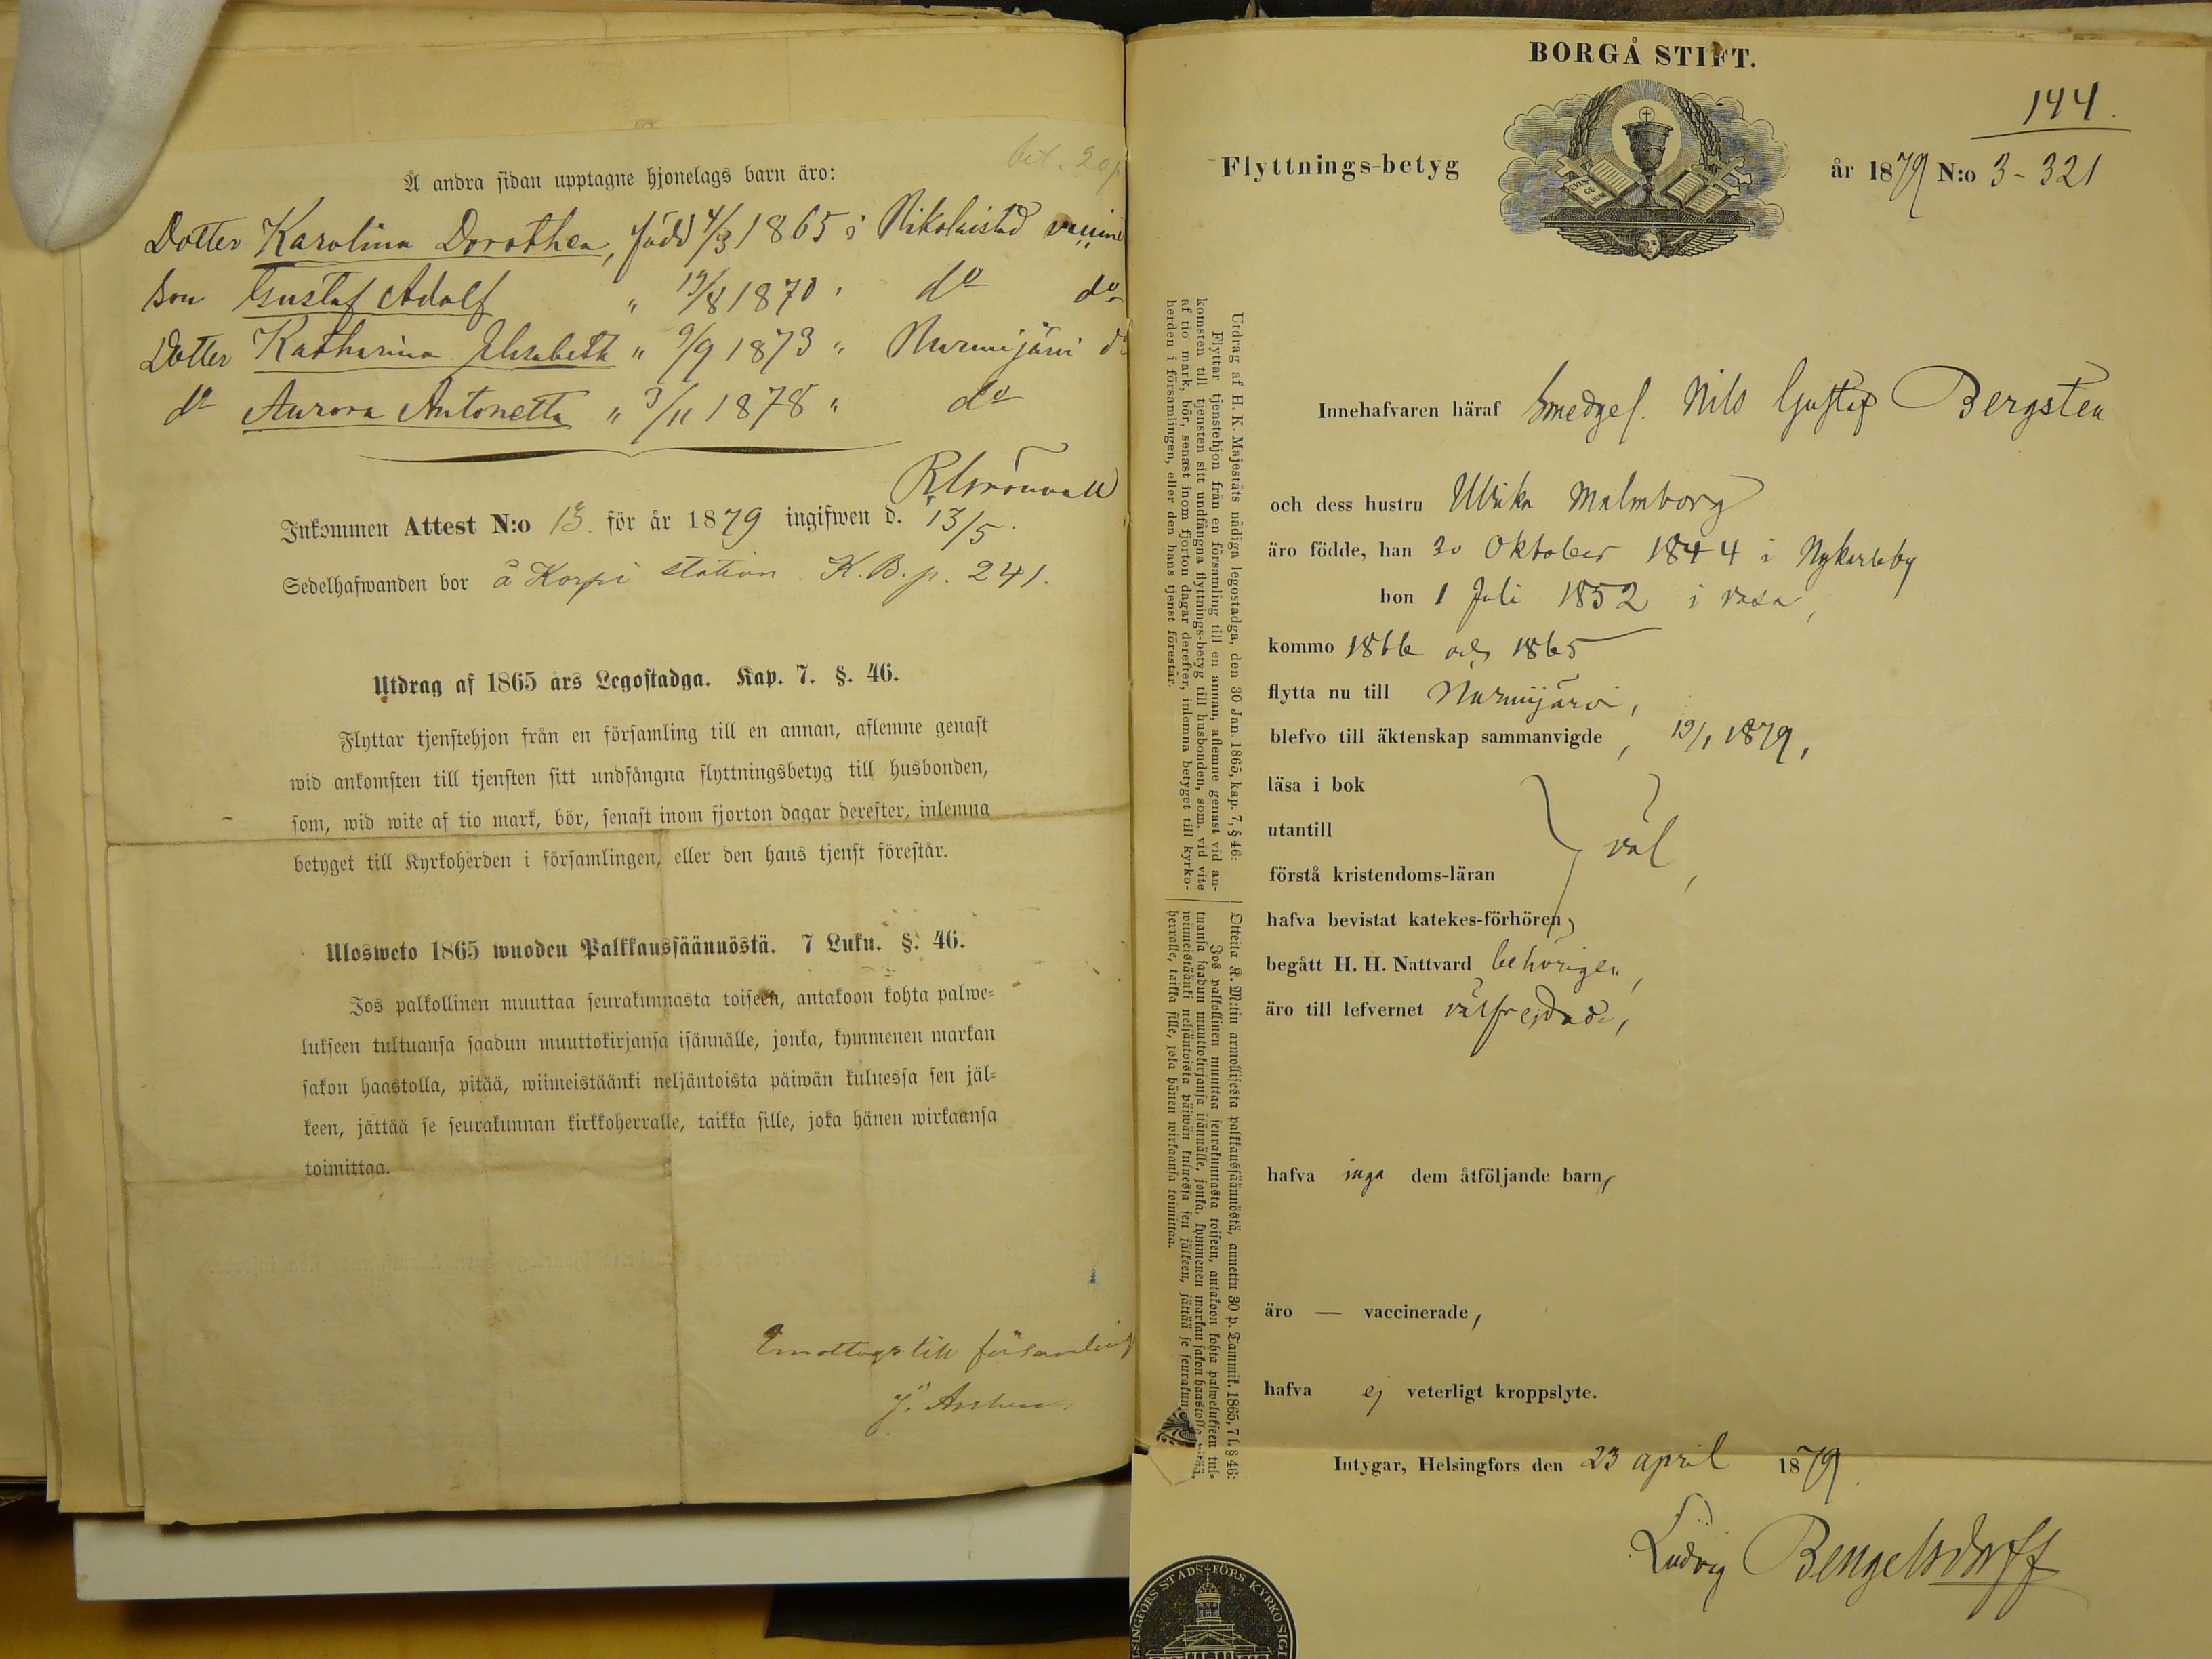 bet. 20p
Å andra sidan upptagne hjonelags barn äro:
Dotter Karolina Dorothea, född 4/3 1865 i Nikolaistad vaccine
Son Gustaf Adolf " 19/8 1870 " do do
Dotter Katharina Elisabeth " 9/9 1873 " Nurmijärvi do
do Aurora Antonetta " 3/11 1878 " do
Inkommen Attest N:o 13 för år 1879 ingifwen d. 13/5.
Sedelhafwanden bor å Korpi station K.B.p. 241.
Utdrag af 1865 års Legostadga. Kap. 7. §. 46.
Flyttar tjenstehjon från en församling till en annan, aflemne genast
wid ankomsten till tjensten sitt undfångna flyttningsbetyg till husbonden,
som, wid wite af tio mark, bör, senast inom fjorton dagar derefter, inlemna
betyget till Kyrkoherden i församlingen, eller den hans tjenst förestår.
Ulosweto 1865 wuoden Palkkaussäännöstä. 7 Luku. §. 46.
Jos palkollinen muuttaa seurakunnasta toiseen, antakoon kohta palwe-
lukseen tultuansa saadun muuttokirjansa isännälle, jonka, kymmenen markan
sakon haastolla, pitää, wiimeistäänki neljäntoista päiwän kuluessa sen jäl-
keen, jättää se seurakunnan kirkkoherralle, taikka sille, joka hänen wirkaansa
toimittaa.
Emottages till församling
BORGÅ STIFT.
144.
Flyttnings-betyg år 1879 N:o 3-321
Utdrag af H. K. Majestäts nådiga legostadga, den 30 Jan. 1865, kap. 7, § 46:
Flyttar tjenstehjon från en församling till en annan, aflemne genast vid an-
komsten till tjensten sitt undfångna flyttnings-betyg till husbonden, som, vid vite
af tio mark, bör, senast inom fjorton dagar derefter, inlemna betyget till kyrko-
herden i församlingen, eller den hans tjenst förestår.
Otteita K. M:tin armollisesta palkkaussäännöstä, annettu 30 p. Tammik. 1865, 7 l. § 46:
Jos palkollinen muuttaa seurakunnasta toiseen, antakoon kohta palwelukseen tul-
tuansa saadun muuttokirjansa isännälle, jonka, kymmenen markan sakon haastolla pitää,
wiimeistäänki neljäntoista päiwän kuluessa sen jälkeen, jättää se seurakun
herralle, taikka sille, joka hänen wirkaansa toimittaa.
Innehafvaren häraf Smedges. Nils Gustaf Bergsten
och dess hustru Ulrika Malmborg
äro födde, han 20 Oktober 1844 i Nykarleby
hon 1 Juli 1852 i Vasa,
kommo 1866 och 1865
flytta nu till Nurmijärvi,
blefvo till äktenskap sammanvigde, 19/1 1879,
läsa i bok
utantill
väl,
förstå kristendoms-läran
hafva bevistat katekes-förhören
begått H. H. Nattvard behörigen,
äro till lefvernet välfrejdade,
hafva inga dem åtföljande barn,
äro — vaccinerade,
hafva ej veterligt kroppslyte.
Intygar, Helsingfors den 23 april 1879.
Ludvig Bengelsdorff
LSINGFORS STADS-FÖRS KYRKOSIGI